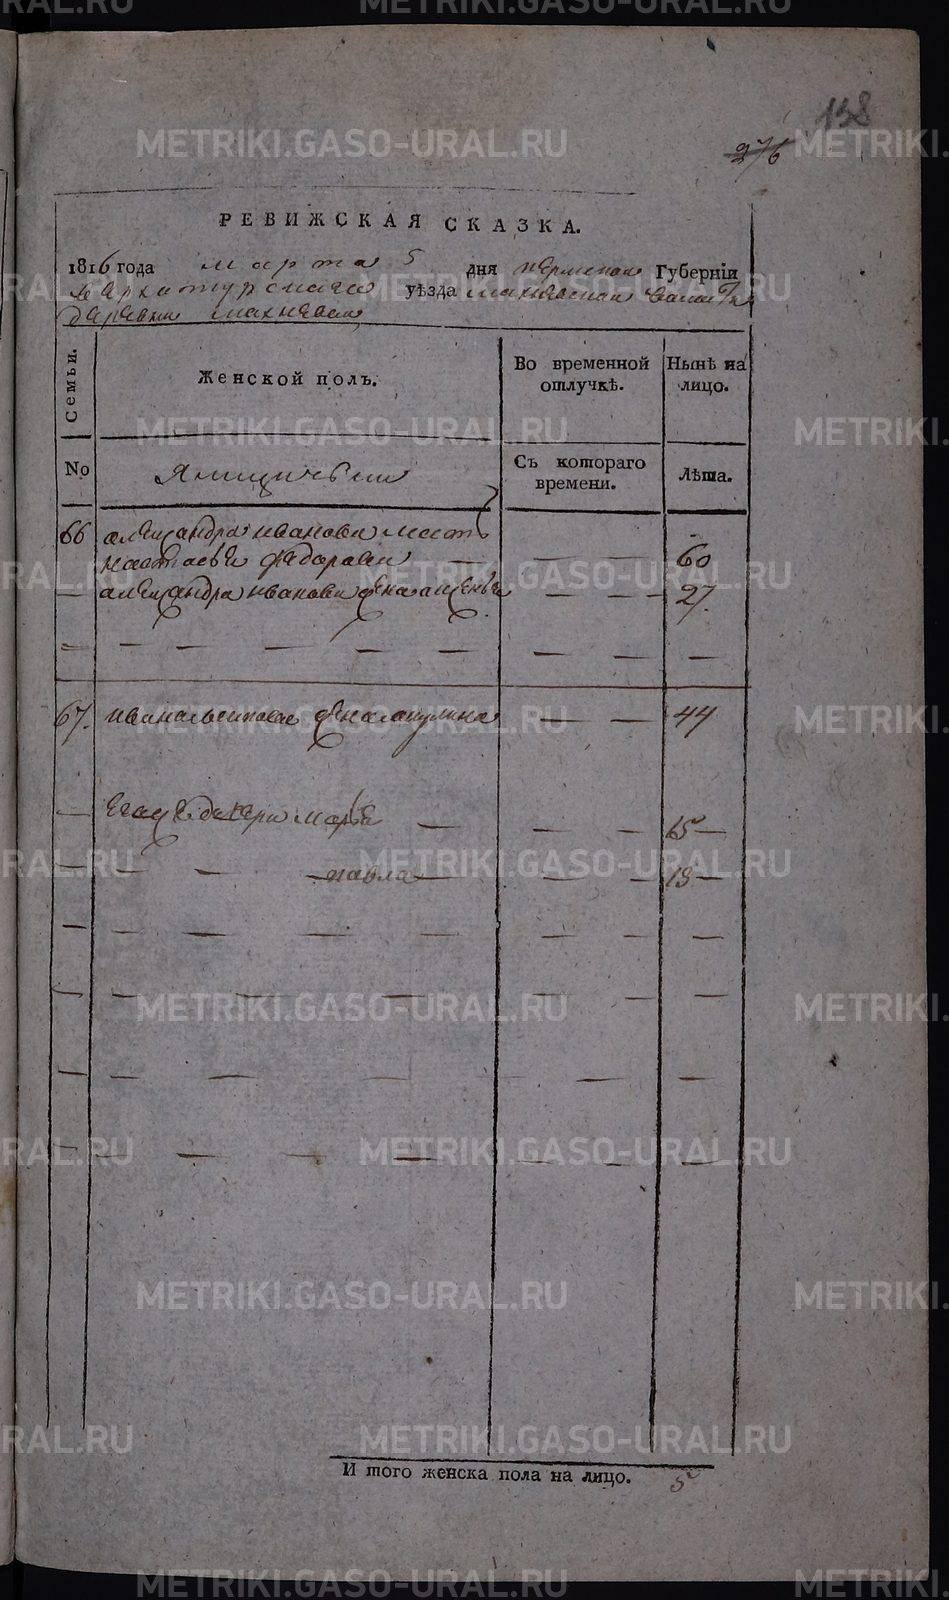 138
276
РЕВИЖСКАЯ СКАЗКА.
1816 года марта 5 дня пермской Губерніи
Верхотурскаго уѣзда махневской волости
деревни махневой
Семьи.
Женской полъ.
Во временной отлучкѣ.
Нынѣ на лицо.
No
Ямщичьи
Съ котораго времени.
Лѣта.
66 александра иванова мать
настасья федорова — — — 60
— александра иванова жена — — 27.
67. ивана жена акулина — — 44
— Его дочери марья — — — 15 —
— — — павла — — — 13 —
И того женска пола на лицо. 5
METRIKI.GASO-URAL.RU